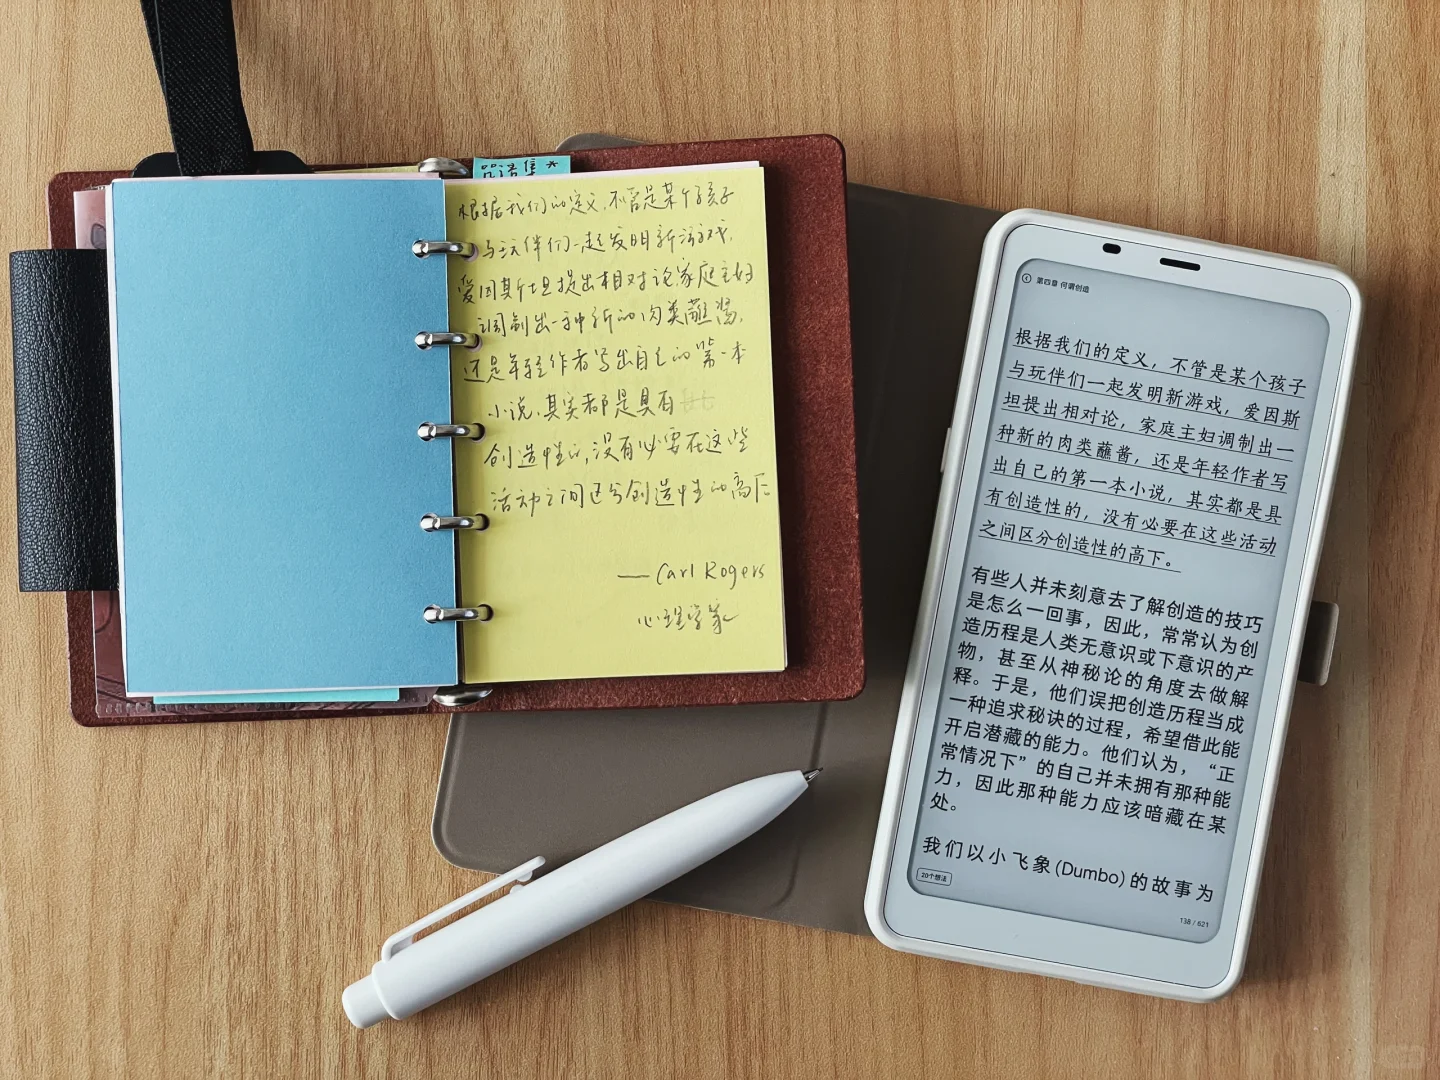 语集
根据我们的定义,不管是某个孩子
与玩伴们一起发明新游戏,
爱因斯坦提出相对论,家庭主妇
调制出一种新的肉类蘸酱,
还是年轻作者写出自己的第一本
小说,其实都是具有
创造性的,没有必要在这些
活动之间区分创造性的高下
—Carl Rogers
心理学家
第四章 何谓创造
根据我们的定义,不管是某个孩子
与玩伴们一起发明新游戏,爱因斯
坦提出相对论,家庭主妇调制出一
种新的肉类蘸酱,还是年轻作者写
出自己的第一本小说,其实都是具
有创造性的,没有必要在这些活动
之间区分创造性的高下。
有些人并未刻意去了解创造的技巧
是怎么一回事,因此,常常认为创
造历程是人类无意识或下意识的产
物,甚至从神秘论的角度去做解
释。于是,他们误把创造历程当成
一种追求秘诀的过程,希望借此能
开启潜藏的能力。他们认为,“正
常情况下”的自己并未拥有那种能
力,因此那种能力应该暗藏在某
处。
我们以小飞象(Dumbo)的故事为
20个想法
138 / 621